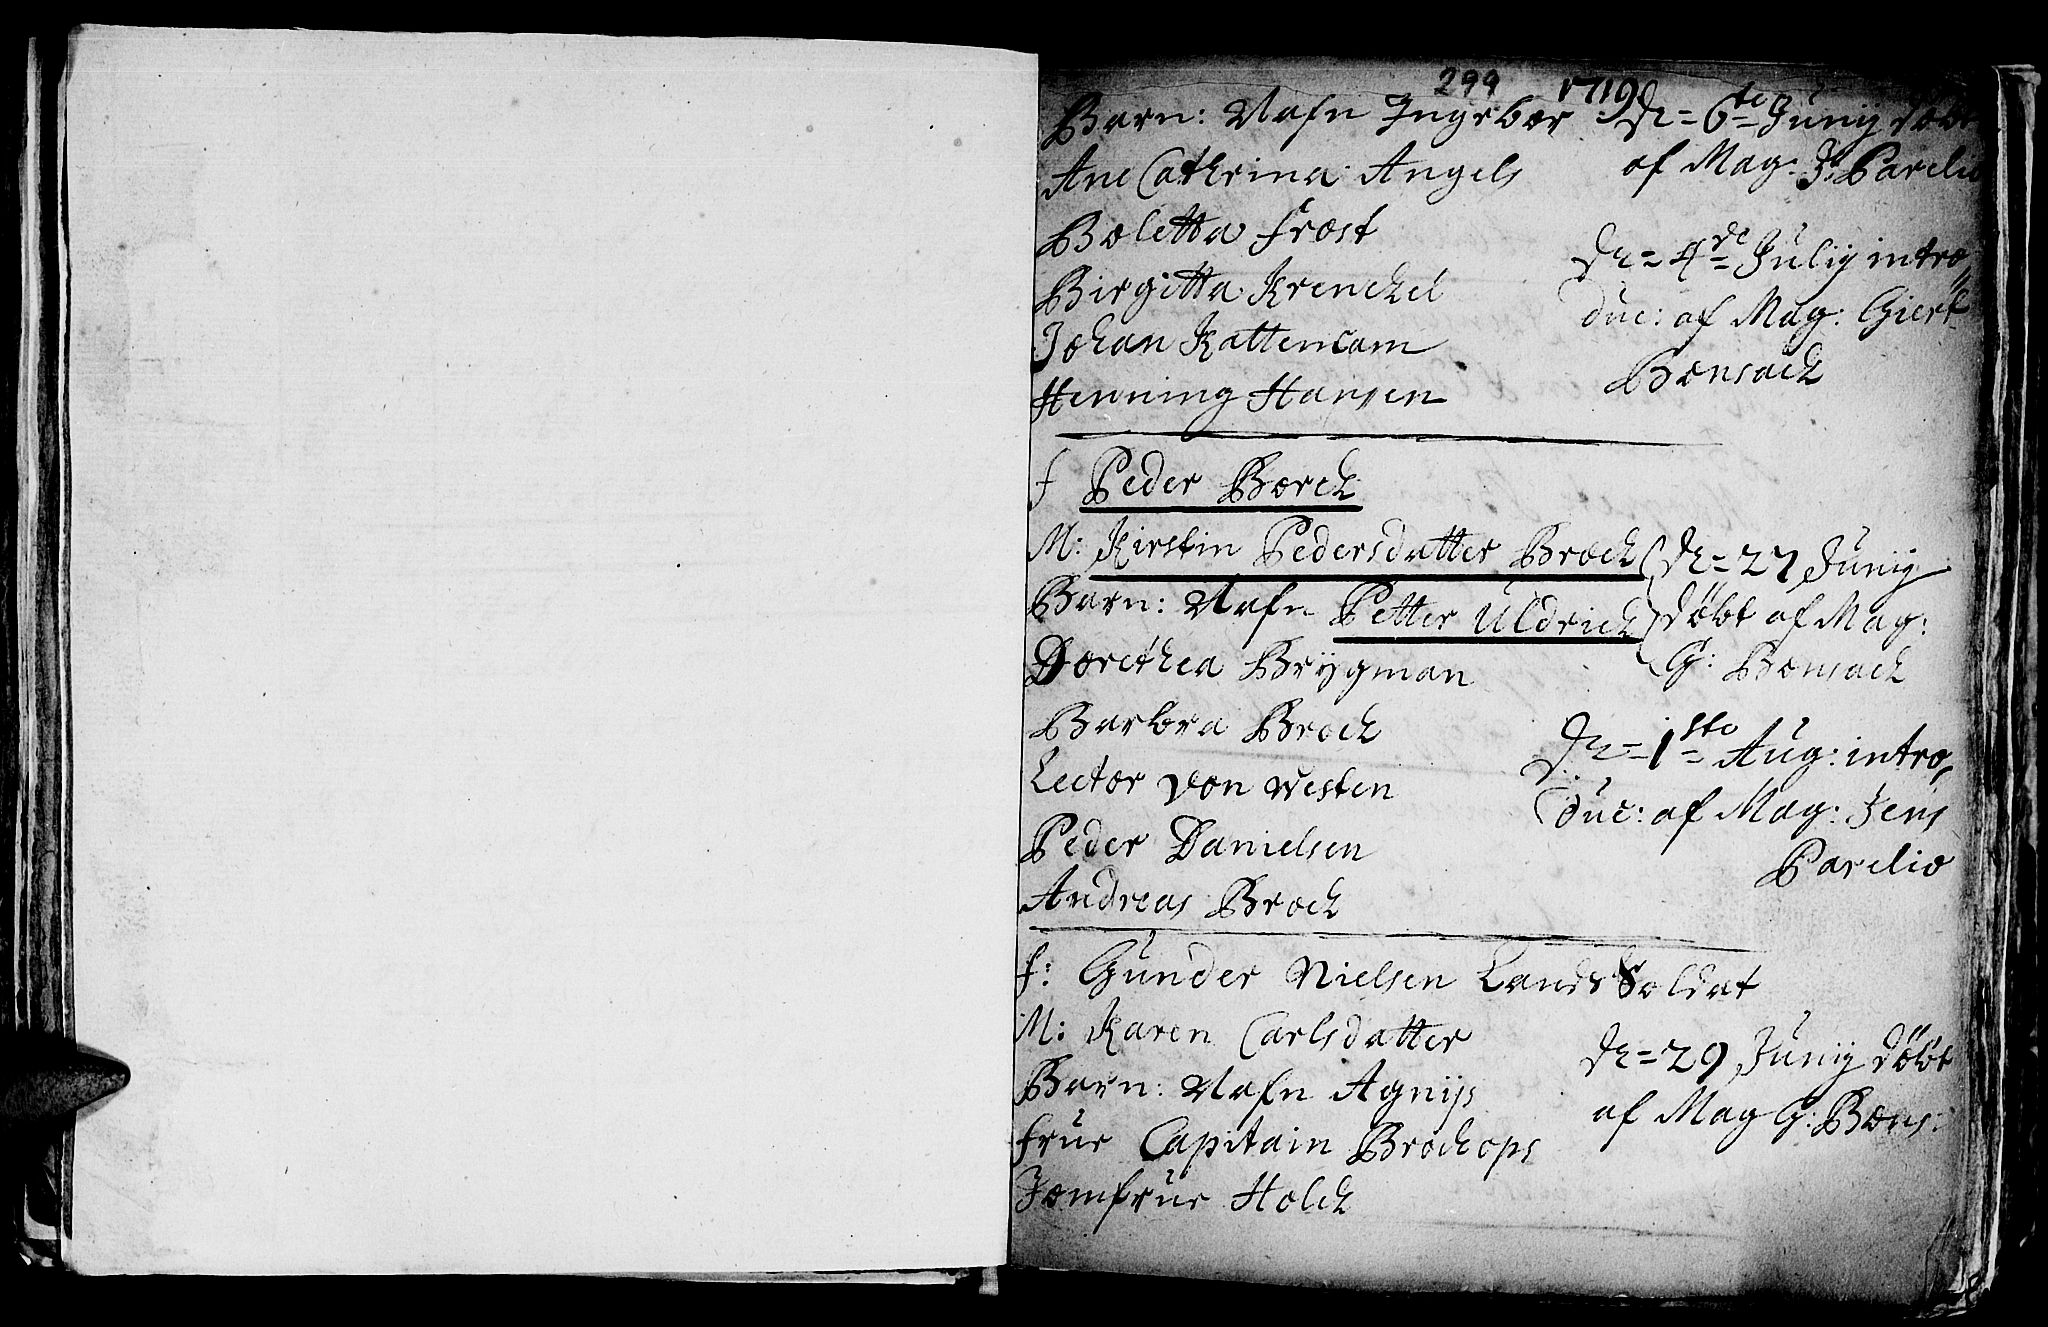 299 1719
Barn: Nafn Ingebor
Ane Cathrina Angels
Boletta Frost
Birgitta Krenckel
Johan Kattencam
Henning Hansen
Dn = 6te Junij döbt
af Mag: Js Parelio
Dn = 4de Julij intro
duc: af Mag: Giert
Bonsack
f Peder Borck
M: Kirstin Pedersdatter Brock
Barn: Nafn Petter Uldrich
Dorethea Brÿgman
Barbra Brock
Lector von Westen
Peder Danielsen
Andreas Brock
Dn = 27 Junij
döbt af Mag:
G: Bonsack
Dn = 1ste Aug: intro,
duc: af Mag: Jens
Parelio
f: Gunder Nielsen Lands Soldat
M: Karen Carlsdatter
Barn: Nafn Agnijs
frue Capitain Brockops
Jomfrue Holck
Dn = 29 Junij döbt
af Mag G: Bons: